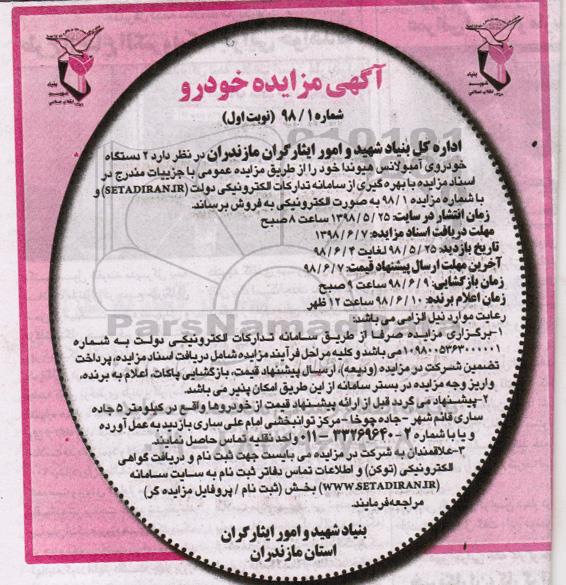 آگهی مزایده خودرو
شماره ۹۸/۱ (نوبت اول)
اداره کل بنیاد شهید و امور ایثارگران مازندران در نظر دارد ۲ دستگاه
خودروی آمبولانس هیوندا خود را از طریق مزایده عمومی با جزییات مندرج در
اسناد مزایده با بهره گیری از سامانه تدارکات الکترونیکی دولت (SETADIRAN.IR) و
با شماره مزایده ۹۸/۱ به صورت الکترونیکی به فروش برساند.
زمان انتشار در سایت: ۱۳۹۸/۵/۲۵ ساعت ۸ صبح
مهلت دریافت اسناد مزایده: ۱۳۹۸/۶/۷
تاریخ بازدید: ۹۸/۵/۲۵ لغایت ۹۸/۶/۴
آخرین مهلت ارسال پیشنهاد قیمت: ۹۸/۶/۷
زمان بازگشایی: ۹۸/۶/۹ ساعت ۹ صبح
زمان اعلام برنده: ۹۸/۶/۱۰ ساعت ۱۲ ظهر
رعایت موارد ذیل الزامی می باشد:
۱-برگزاری مزایده صرفا از طریق سامانه تدارکات الکترونیکی دولت به شماره
۱۰۹۸۰۰۵۳۶۳۰۰۰۰۰۱ می باشد و کلیه مراحل فرآیند مزایده شامل دریافت اسناد مزایده، پرداخت
تضمین شرکت در مزایده (ودیعه)، ارسال پیشنهاد قیمت، بازگشایی پاکات، اعلام به برنده،
واریز وجه مزایده در بستر سامانه از این طریق امکان پذیر می باشد.
۲-پیشنهاد می گردد قبل از ارائه پیشنهاد قیمت از خودروها واقع در کیلومتر ۵ جاده
ساری قائم شهر -جاده جوخا -مرکز توانبخشی امام علی ساری بازدید به عمل آورده
و یا با شماره ۲-۳۳۲۶۹۶۴۰-۰۱۱ واحد نقلیه تماس حاصل نمایند
۳-علاقمندان به شرکت در مزایده می بایست جهت ثبت نام و دریافت گواهی
الکترونیکی (توکن) و اطلاعات تماس دفاتر ثبت نام به سایت سامانه
(WWW.SETADIRAN.IR) بخش (ثبت نام / پروفایل مزایده گر)
مراجعه فرمایند.
بنیاد شهید و امور ایثارگران
استان مازندران
ParsNamadData